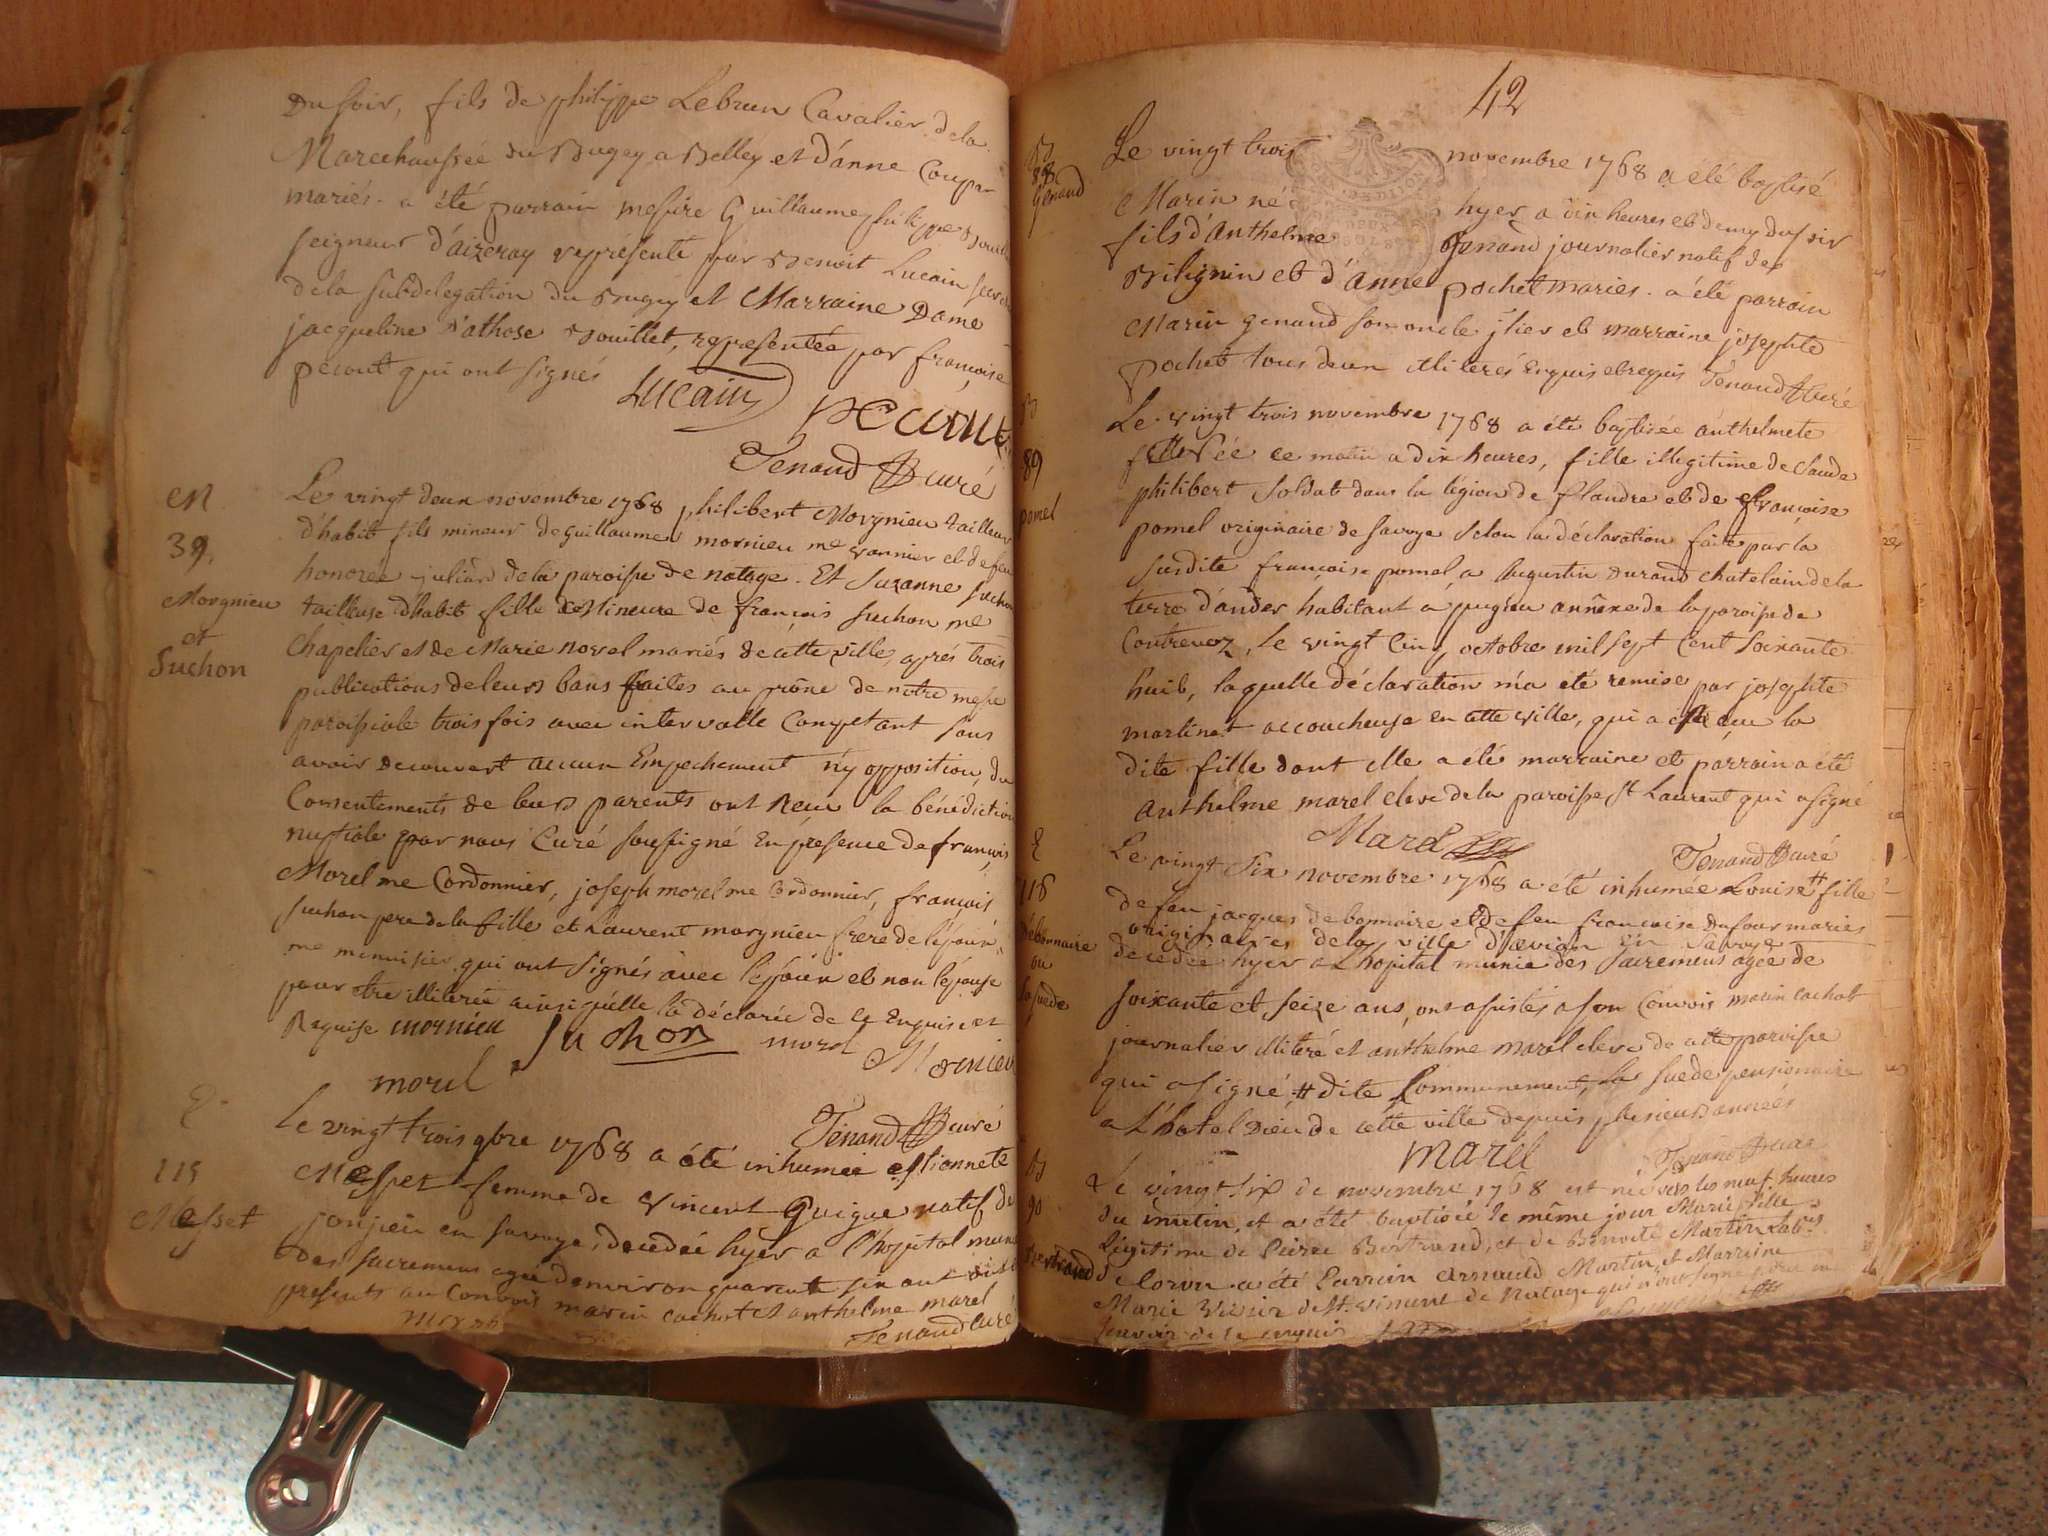 Du soir, fils de philippe Lebrun Cavalier dela
Marechaussée du Bugey a Belley et d'anne Coupar
mariés. a été parrain messire Guillaume philippe
seigneur d'aizeray représenté par Benoit Lucain
dela subdelegation du Bugey et Marraine Dame
jacqueline d'athose Douillet, representée par françoise
pecout qui ont signés
Lucain
pecout
Tenand Curé
M
39.
Morgnieu
et
Suchon
Le vingt deux novembre 1768 philibert Morgnieu tailleur
d'habit fils mineur de guillaume mornieu me vannier et de feu
honorée juliard de la paroisse de natage. Et Suzanne Suchon
tailleuse d'habit fille Mineure de françois suchon me
Chapelier et de Marie novel mariés de cette ville, aprés trois
publications de leurs bans faites au prône de notre messe
paroissiale trois fois avec intervalle Competant sans
avoir decouvert aucun Empechement ny opposition, du
Consentements de leurs parents ont Reçu la bénédiction
nuptiale par nous Curé soussigné En presence de françois
Morel me Cordonnier, joseph morel me Cordonnier, françois
suchon pere de la fille et Laurent morgnieu frere de l'epoux
me menuisier qui ont signés avec l'epoux et non l'epouse
pour être illiterée ainsi qu'elle l'a déclarée de ce Enquise et
Requise mornieu Suchon morel Mornieu
morel
Tenand Curé
E
115
Messet
Le vingt trois 9bre 1768 a été inhumée
Messet femme de Vincent Guigue natif de
jonjieu en savoye, decedée hyer a l'hopital munie
des sacremens agée d'environ quarente six ans
presents au Convois marin cachat et anthelme marel
Tenand Curé
42
B
88
Genand
Le vingt trois novembre 1768 a été baptisé
Marin né hyer a dix heures et demy du soir
fils d'Anthelme Genand journalier natif de
Bilignin et d'Anne pochet mariés. a été parrain
Marin genand son oncle jlier et marraine josephte
pochet tous deux illiterés Enquis et requis Tenand Curé
B
89
pomel
Le vingt trois novembre 1768 a été baptisée anthelmete
née ce matin a dix heures, fille illegitime de Claude
philibert Soldat dans la légion de flandre et de françoise
pomel originaire de savoye selon la déclaration faite par la
susdite françoise pomel, a Augustin Durand chatelain de la
terre d'andert habitant a pugieu annêxe de la paroisse de
Contrevoz, le vingt Cinq octobre mil sept cent soixante
huit, laquelle déclaration m'a été remise par josephte
martinet accoucheuse en cette ville, qui a reçue la
dite fille dont elle a été marraine et parrain a été
Anthelme marel cleve de la paroisse St Laurent qui a signé
Marel
Tenand Curé
E
116
débonnaire
ou
la suede
Le vingt six novembre 1768 a été inhumée Louise # fille
de feu jacques debonnaire et de feu françoise Dufour mariés
originaires de la ville d'evian En Savoye
decedée hyer a l'hopital munie des sacremens agée de
soixante et seize ans, ont assistés a son Convois marin cachat
journalier illiteré et anthelme marel cleve de cette paroisse
qui a signé # dite Communement, la suede pensionaire
a l'hotel Dieu de cette ville depuis plusieurs années
marel
Tenand Curé
B
90
Bertrand
Le vingt six de novembre 1768 est née vers les neuf heures
du matin, et a été baptisée le même jour Marie fille
Légitime de Pierre Bertrand, et de Benoite Martin
a été Parrain Arnaud Martin, et Marraine
Marie